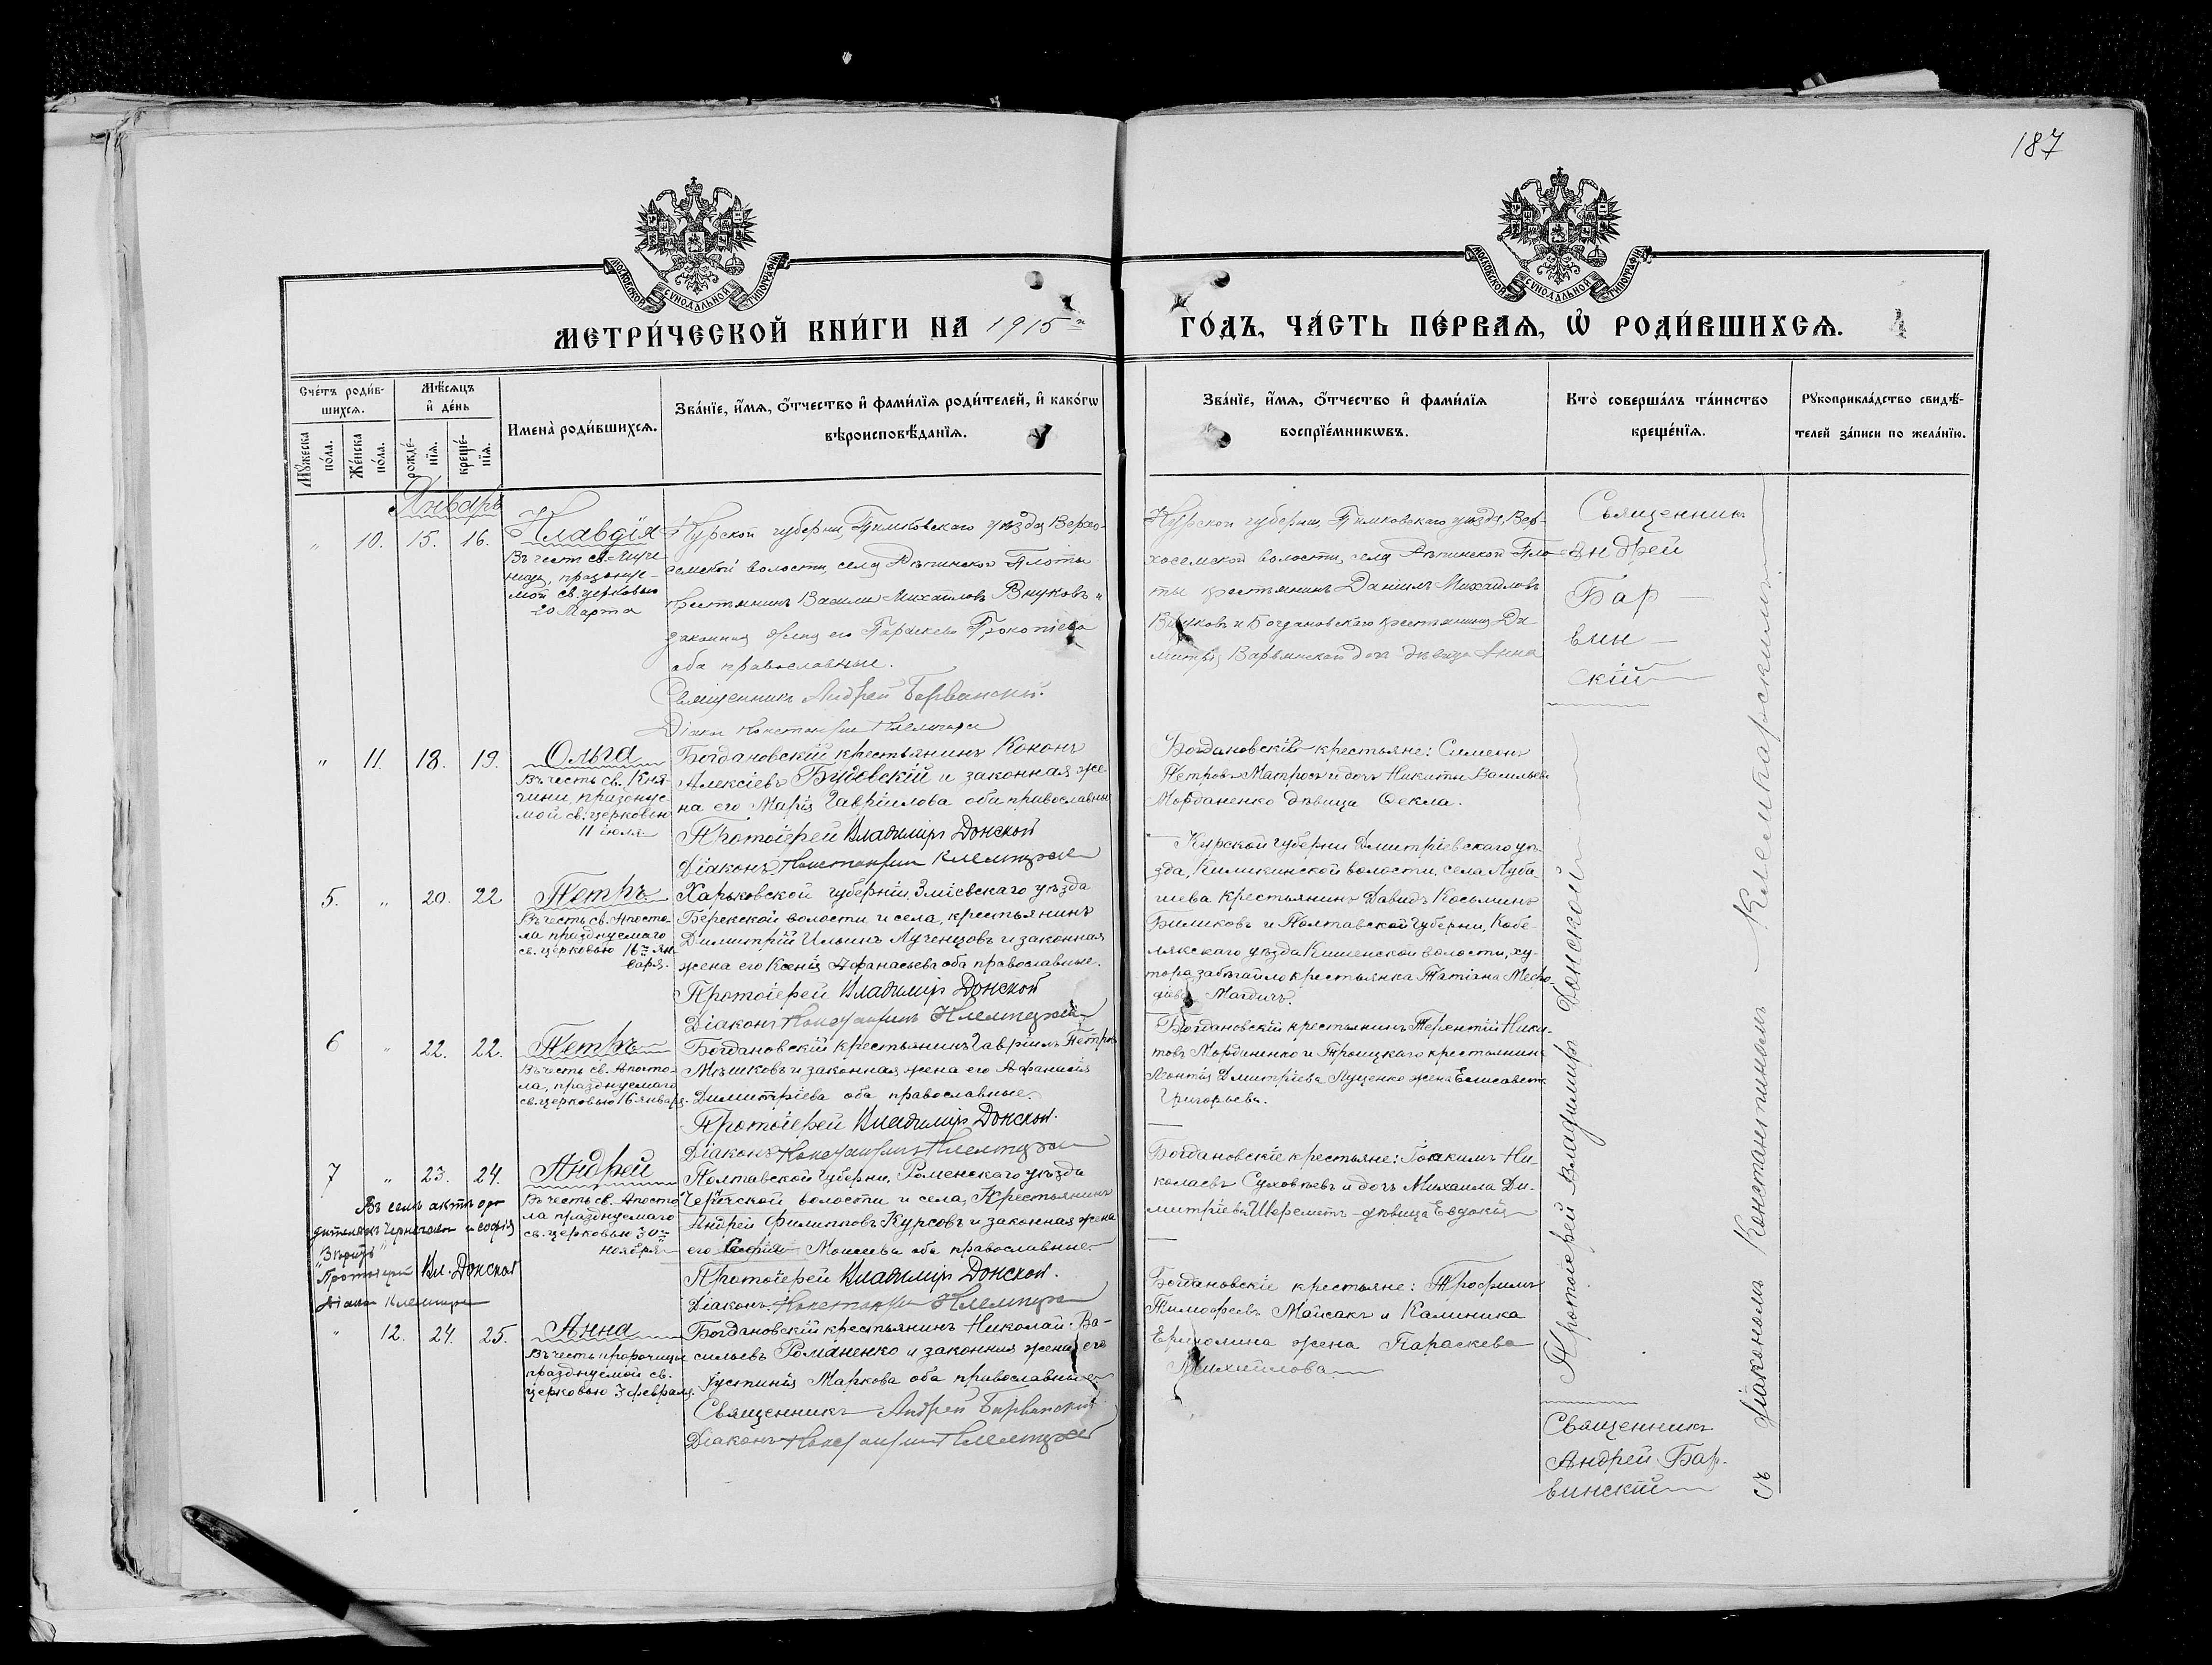 187
МОСКОВСКОЙ СѴНОДАЛЬНОЙ ТИПОГРАФІИ
МОСКОВСКОЙ СѴНОДАЛЬНОЙ ТИПОГРАФІИ
МЕТРИ́ЧЕСКОЙ КНИ́ГИ НА 1915 й
ГО́ДЪ, ЧА́СТЬ ПЕ́РВАѦ, Ѿ РОДИ́ВШИХСѦ. 4
Сче́тъ роди́в-
шихсѧ.
Мѣ́сѧцъ
и҆ де́нь
Мꙋ́жеска
по́ла.
Же́нска
по́ла.
рожде́-
нїѧ.
креще́-
нїѧ.
Имена̀ роди́вшихсѧ.
Зва́нїе, и҆́мѧ, ѻ҆́тчество и҆ фами́лїѧ роди́телей, и҆ како́гѡ
вѣроисповѣ́данїѧ.
Зва́нїе, и҆́мѧ, ѻ҆́тчество и҆ фами́лїѧ
воспрїе́мникѡвъ.
Кто̀ соверша́лъ та́инство
креще́нїѧ.
Рꙋкоприкла́дство свидѣ́-
телей за́писи по жела́нїю.
Январь
" 10. 15. 16.
Клавдія
Въ честь св. Муче-
ницы, празднуе-
мой св. церковью
20 Марта
Курской губерніи, Тимковскаго уѣзда, Верхо-
семской волости, села Рѣпинской Плоты
крестьянинъ Василій Михаиловъ Внуковъ и
законная жена его Параскева Прокопіева
оба православные.
Священникъ Андрей Барвинскій.
Діаконъ Константинъ
Курской губерніи, Тимковскаго уѣзда, Вер-
хосемской волости, села Рѣпинской Пло-
ты крестьянинъ Даніилъ Михаиловъ
Внуковъ и Богдановскаго крестьянина Ди-
митрія Варвинской дочь дѣвица Анна
Священникъ
Андрей
Бар
вин
скій
" 11. 18. 19.
Ольга
Въ честь св. Кня-
гини, празднуе-
мой св. церковью
11 іюля
Богдановскій крестьянинъ Кононъ
Алексіевъ Будовскій и законная же-
на его Марія Гавріилова оба православные
Протоіерей Владиміръ Донской
Діаконъ Константинъ
Богдановскій крестьяне: Симеонъ
Петровъ Матросъ и дочь Никиты Васильева
Морданенко дѣвица Ѳекла.
5. " 20. 22
Петръ
Въ честь св. Апосто-
ла празднуемаго
св. церковью 16го Ян-
варя.
Харьковской губерніи, Зміевскаго уѣзда
Берекской волости и села, крестьянинъ
Димитрій Ильинъ Лученцовъ и законная
жена его Ксенія Аѳанасьева оба православные.
Протоіерей Владиміръ Донской
Діаконъ Константинъ
Курской губерніи Дмитріевскаго уѣ-
зда, волости, села
крестьянинъ Давидъ Косьминъ
Биликовъ и Полтавской губерніи, Кобе-
лякскаго уѣзда Кишенской волости, ху-
тора крестьянка Татіана Меѳо-
діева Магдичъ.
6 " 22. 22.
Петръ
Въ честь св. Апосто-
ла, празднуемаго
св. церковью 16 января.
Богдановскій крестьянинъ Гавріилъ Петровъ
Мѣшковъ и законная жена его Аѳанасія
Димитріева оба православные.
Протоіерей Владиміръ Донской.
Діаконъ Константинъ
Богдановскій крестьянинъ Терентій Ники-
товъ Морданенко и Троицкаго крестьянина
Леонтія Дмитріева Луценко жена Елисавета
Григорьева.
7 " 23. 24.
Андрей
Въ честь св. Апосто-
ла празднуемаго
св. церковью 30го
Ноября
Полтавской губерніи, Роменскаго уѣзда
волости и села, Крестьянинъ
Андрей Филипповъ Курсовъ и законная жена
его Софія Моисеева оба православные.
Протоіерей Владиміръ Донской.
Діаконъ Константинъ
Богдановскіе крестьяне: Іоакимъ Ни-
колаевъ Суховѣевъ и дочь Михаила Ди-
митріева Шереметъ дѣвица Евдокія
Въ семъ актѣ
и Софія
"Вѣрить"
Протоіерей Вл. Донской
Діаконъ
" 12. 24. 25.
Анна
Въ честь пророчицы
празднуемой св.
церковью 3 февраля.
Богдановскій крестьянинъ Николай Ва-
сильевъ Романенко и законная жена его
Іустинія Маркова оба православные
Священникъ Андрей Барвинскій
Діаконъ Константинъ
Богдановскіе крестьяне: Трофимъ
Тимоѳеевъ Майсакъ и Калиника
жена Параскева
Михаилова
Протоіерей Владиміръ Донской
съ діакономъ Константиномъ
Священникъ
Андрей Бар-
винскій